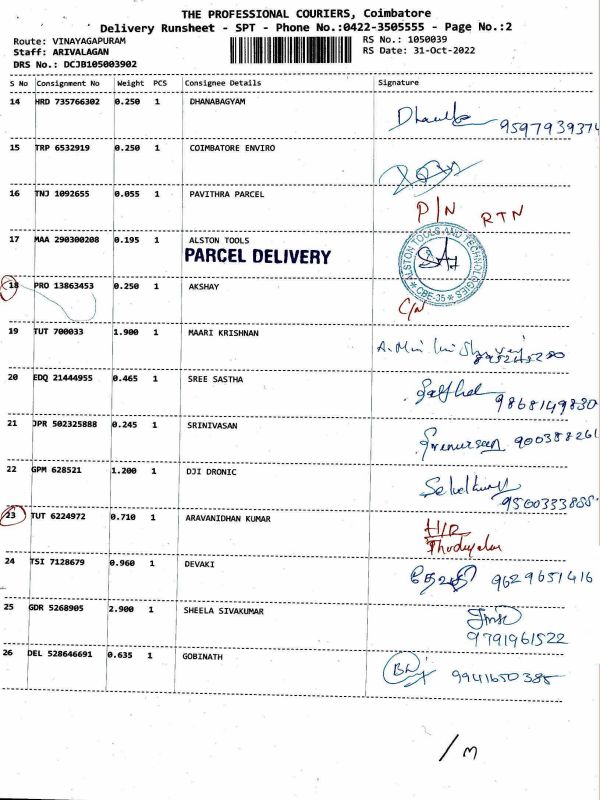 THE PROFESSIONAL COURIERS, Coimbatore
Delivery Runsheet - SPT - Phone No.:0422-3505555 - Page No.:2
Route: VINAYAGAPURAM RS No.: 1050039
Staff: ARIVALAGAN RS Date: 31-Oct-2022
DRS No.: DCJB105003902
S No Consignment No Weight PCS Consignee Details Signature
14 HRD 735766302 0.250 1 DHANABAGYAM
9597939374
15 TRP 6532919 0.250 1 COIMBATORE ENVIRO
16 TNJ 1092655 0.055 1 PAVITHRA PARCEL P/N RTN
17 MAA 290300208 0.195 1 ALSTON TOOLS
PARCEL DELIVERY
ALSTON TOOLS AND TECHNOLOGIES
* CBE-35 *
18 PRO 13863453 0.250 1 AKSHAY
C/N
19 TUT 700033 1.900 1 MAARI KRISHNAN
20 EDQ 21444955 0.465 1 SREE SASTHA
9868149830
21 JPR 502325888 0.245 1 SRINIVASAN 900388261
22 GPM 628521 1.200 1 DJI DRONIC
9500333855
23 TUT 6224972 0.710 1 ARAVANIDHAN KUMAR H/R
24 TSI 7128679 0.960 1 DEVAKI தேவகி 9629651416
25 GDR 5268905 2.900 1 SHEELA SIVAKUMAR
9791961522
26 DEL 528646691 0.635 1 GOBINATH 9941650385
/ m